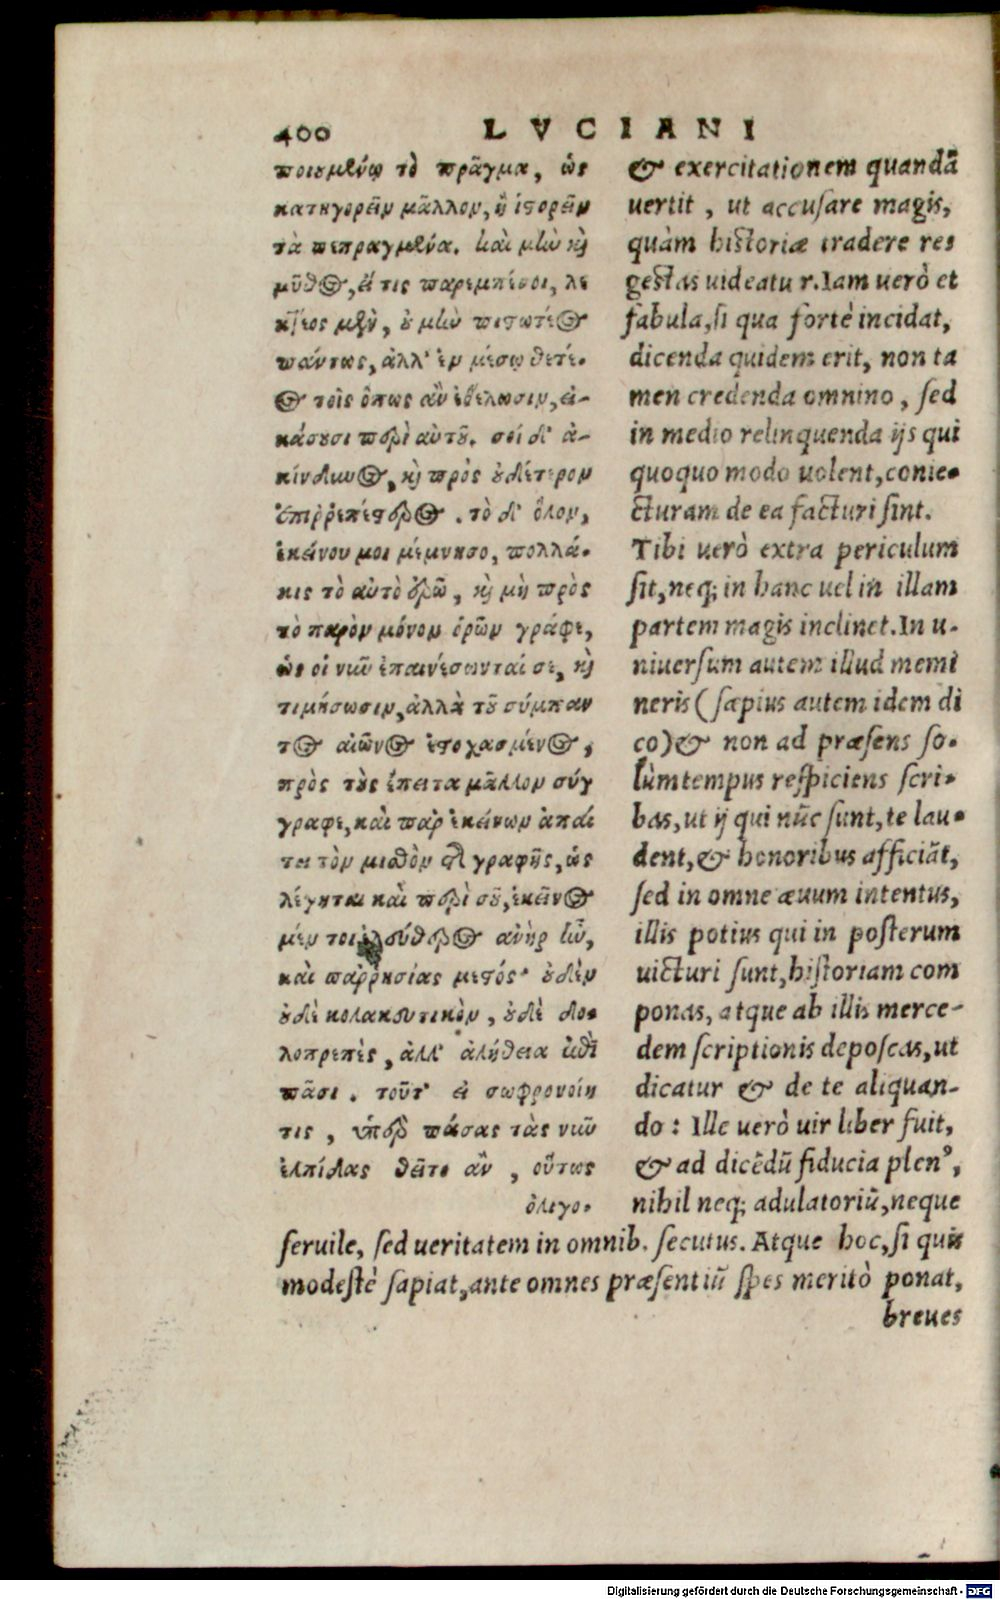 400 LVCIANI
ποιουμένῳ τὸ πρᾶγμα, ὡς
κατηγορεῖν μᾶλλον, ἢ ἱστορεῖν
τὰ πεπραγμένα. καὶ μὴν καὶ
μῦθος, εἴ τις παρεμπέσοι, λε
κτέος μὲν, οὐ μὴν πιστωτέος
πάντως, ἀλλ' ἐν μέσῳ θετέ-
ος τοῖς ὅπως ἂν ἐθέλωσιν, εἰ-
κάσουσι περὶ αὐτοῦ. σοὶ δ' ἀ-
κίνδυνος, καὶ πρὸς οὐδέτερον
ἐπιῤῥεπέστερος. τὸ δ' ὅλον,
ἐκείνου μοι μέμνησο, πολλά-
κις τὸ αὐτὸ ἐρῶ, καὶ μὴ πρὸς
τὸ παρὸν μόνον ὁρῶν γράφε,
ὡς οἱ νῦν ἐπαινέσωνταί σε, καὶ
τιμήσωσιν, ἀλλὰ τοῦ σύμπαν
τος αἰῶνος ἐστοχασμένος,
πρὸς τοὺς ἔπειτα μᾶλλον σύγ
γραφε, καὶ παρ' ἐκείνων ἀπαί
τει τὸν μισθὸν τῆς γραφῆς, ὡς
λέγηται καὶ περὶ σοῦ, ἐκεῖνος
μέν τοι ἐλεύθερος ἀνὴρ ἦν,
καὶ παῤῥησίας μεστός· οὐδὲν
οὐδὲ κολακευτικὸν, οὐδὲ δου-
λοπρεπὲς, ἀλλ' ἀλήθεια ἐπὶ
πᾶσι. τοῦτ' εἰ σωφρονοίη
τις, ὑπὲρ πάσας τὰς νῦν
ἐλπίδας θεῖτο ἂν, οὕτως
ὀλιγο-
& exercitationem quandā
uertit, ut accusare magis,
quàm historiæ tradere res
gestas uideatu r. Iam uerò et
fabula, si qua fortè incidat,
dicenda quidem erit, non ta
men credenda omnino, sed
in medio relinquenda ijs qui
quoquo modo uolent, conie-
cturam de ea facturi sint.
Tibi uerò extra periculum
sit, neq; in hanc uel in illam
partem magis inclinet. In u-
niuersum autem illud memi
neris (sæpius autem idem di
co) & non ad præsens so-
lùm tempus respiciens scri-
bas, ut ij qui nūc sunt, te lau-
dent, & honoribus afficiāt,
sed in omne æuum intentus,
illis potius qui in posterum
uicturi sunt, historiam com
ponas, atque ab illis merce-
dem scriptionis deposcas, ut
dicatur & de te aliquan-
do: Ille uerò uir liber fuit,
& ad dicēdū fiducia plenꝰ,
nihil neq; adulatoriū, neque
seruile, sed ueritatem in omnib. secutus. Atque hoc, si quis
modestè sapiat, ante omnes præsentiū spes meritò ponat,
breues
Digitalisierung gefördert durch die Deutsche Forschungsgemeinschaft - DFG